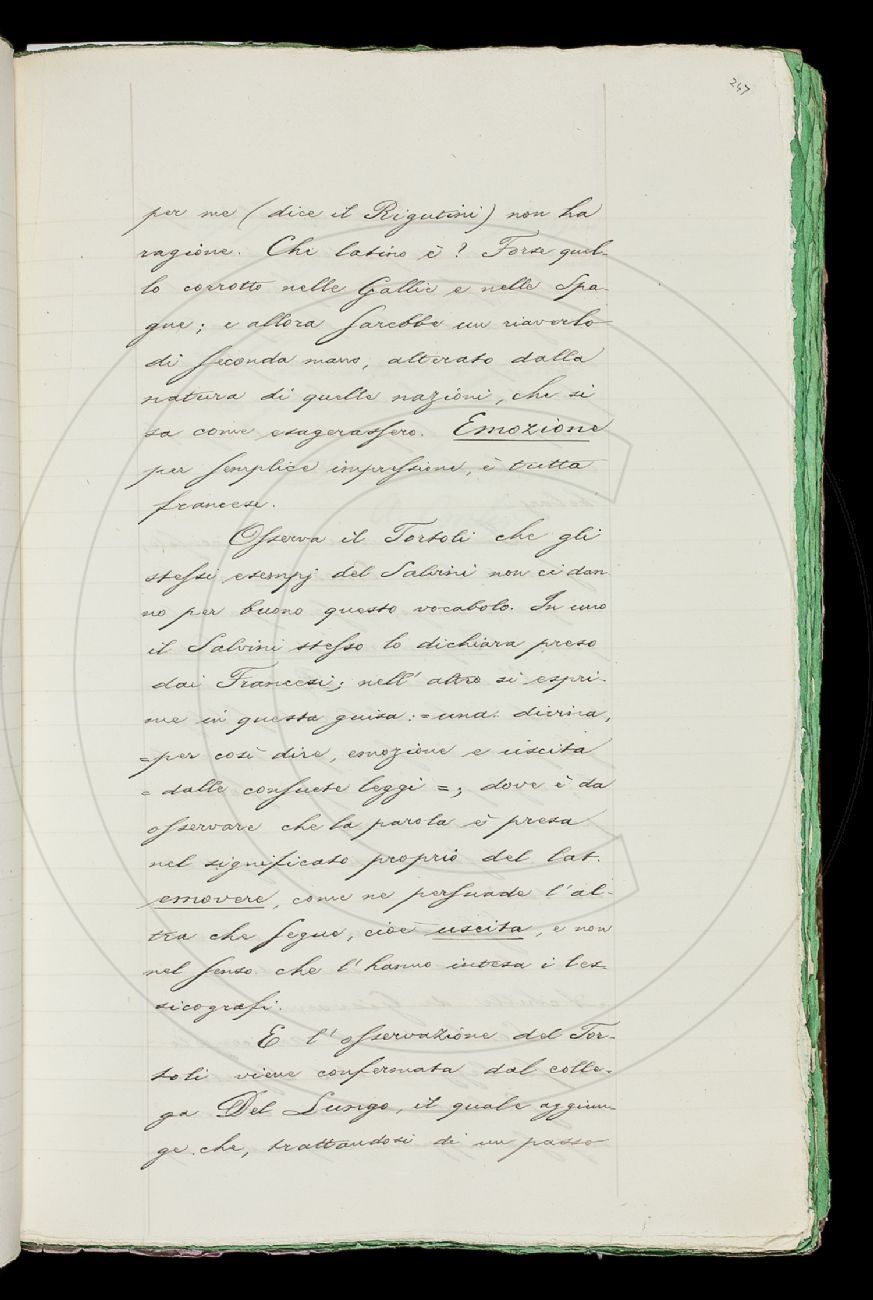 247
per me (dice il Rigutini) non ha
ragione. Che latino è? Forse quel-
lo corrotto nelle Gallie e nelle Spa-
gne; e allora sarebbe un riaverlo
di seconda mano, alterato dalla
natura di quelle nazioni, che si
sa come esagerassero. Emozione
per semplice impressione, è tutta
francese.
Osserva il Tortoli che gli
stessi esempj del Salvini non ci dan
no per buono questo vocabolo. In uno
il Salvini stesso lo dichiara preso
dai Francesi; nell'altro si espri-
me in questa guisa: = una divina,
= per così dire, emozione e uscita
= dalle consuete leggi =; dove è da
osservare che la parola è presa
nel significato proprio del lat.
emovere, come ne persuade l'al-
tra che segue, cioè uscita, e non
nel senso che l'hanno intesa i les-
sicografi.
E l'osservazione del Tor-
toli viene confermata dal colle-
ga Del Lungo, il quale aggiun-
ge che, trattandosi di un passo